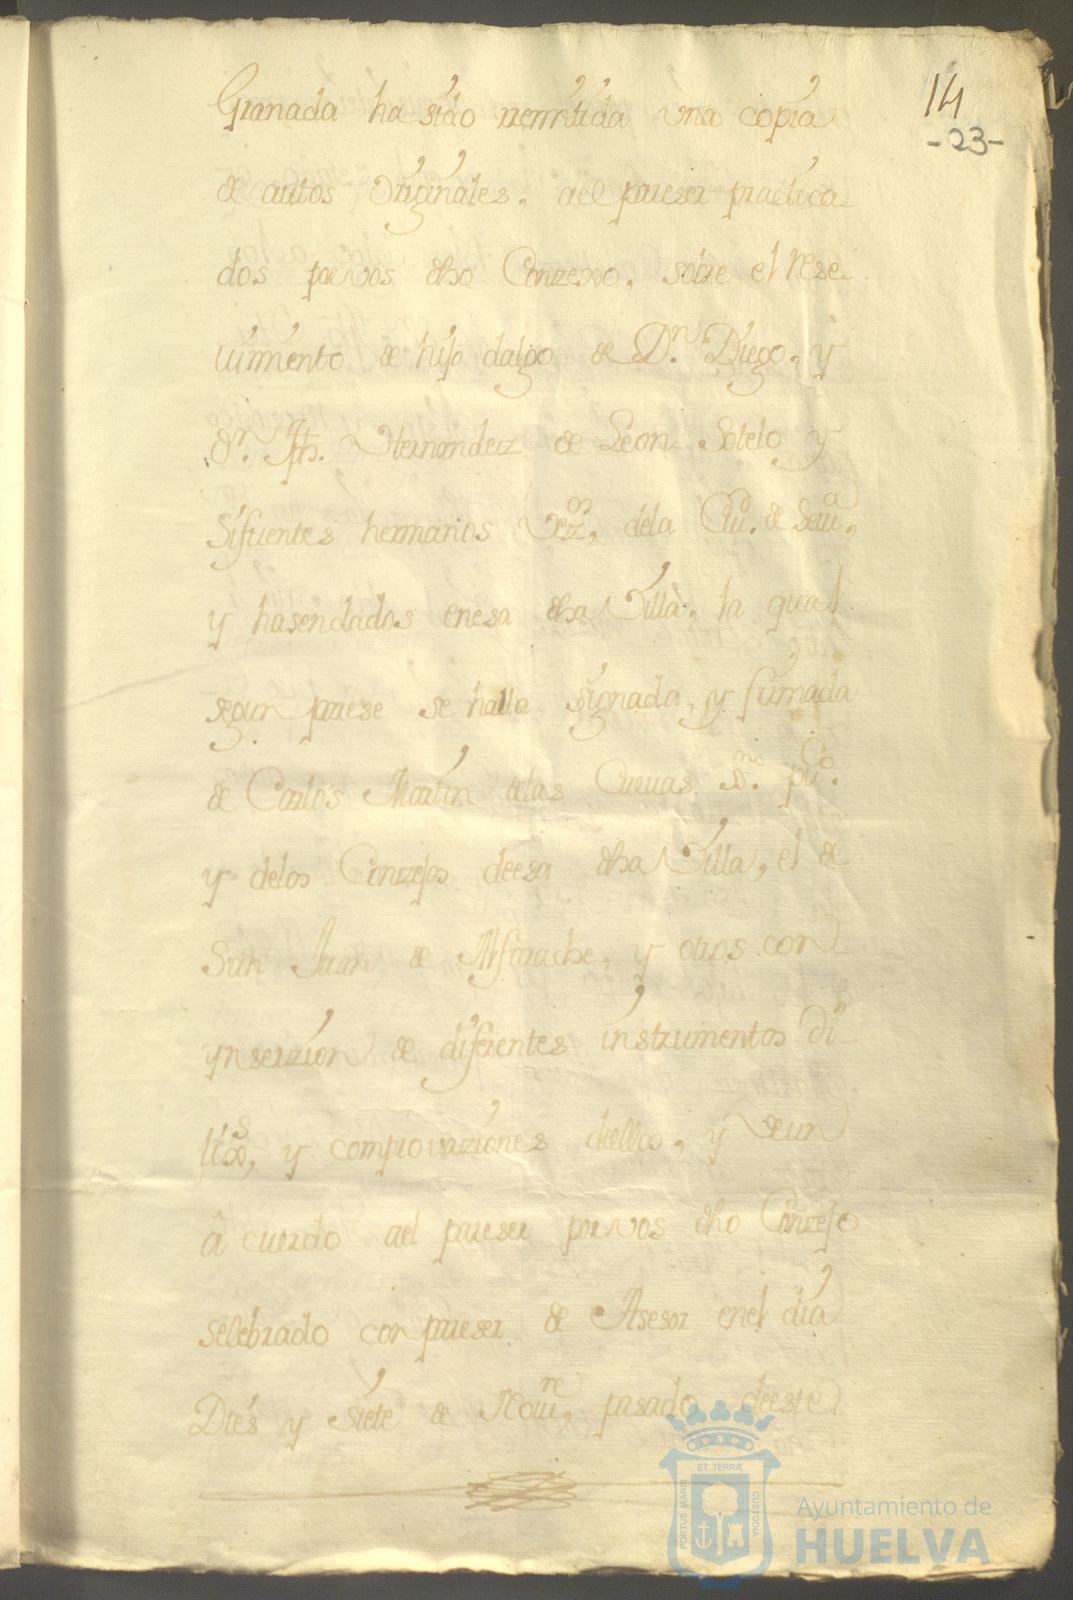 14
-23-
Granada ha sido rremitida una copia
de autos originales, ael pareser practica-
dos porvos dho Conzexo, sobre el Rese-
uimiento de hijo dalgo de Dn. Diego, y
dn. Jph. Hernandez de Leon Sotelo y
Sifuentes hermanos Vezos, dela Ciud. de Seua,
y hasendados enesa dha Villa, la qual
segun parese se halla signada, y firmada
de Carlos Martin delas Cueuas Ssno. puCo.
y delos Conzejos deesa dha Villa, el de
San Juan de Alfarache, y otros con
ynserzion de diferentes instrumentos di-
y comprovaziones deellos, y deun
â cuerdo ael pareser porvos dho Conzejo
selebrado con pareser de Asesor enel dia
Dies y Siete de Noure, pasado deeste
PORTUS MARIS
ET TERRÆ
CUSTODIA
Ayuntamiento de
HUELVA